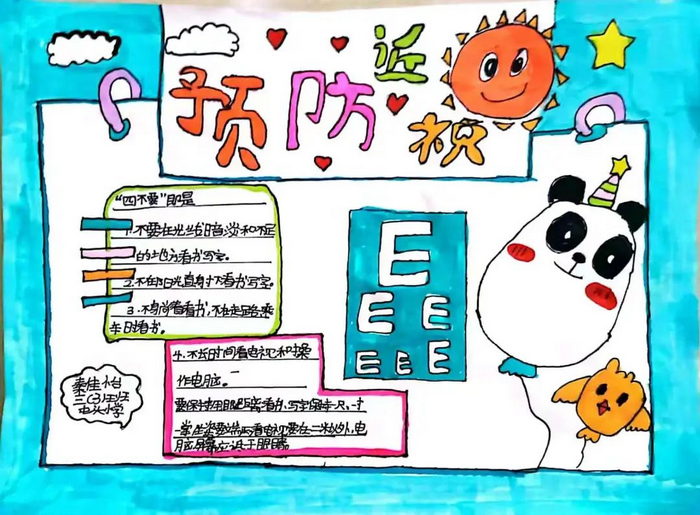 预防近视
"四不要"即是
1.不要在光线暗淡和不足
的地方看书写字。
2.不在阳光直射下看书写字。
3.不躺着看书,不在走路乘
车时看书。
4.不长时间看电视和操
作电脑。
要保持用眼距离看书,写字保持一尺,一寸
一拳坐姿要端正看电视要在二米以外,电
脑屏幕应低于眼睛。
E
E E
E E E
三(3)班
中头小学